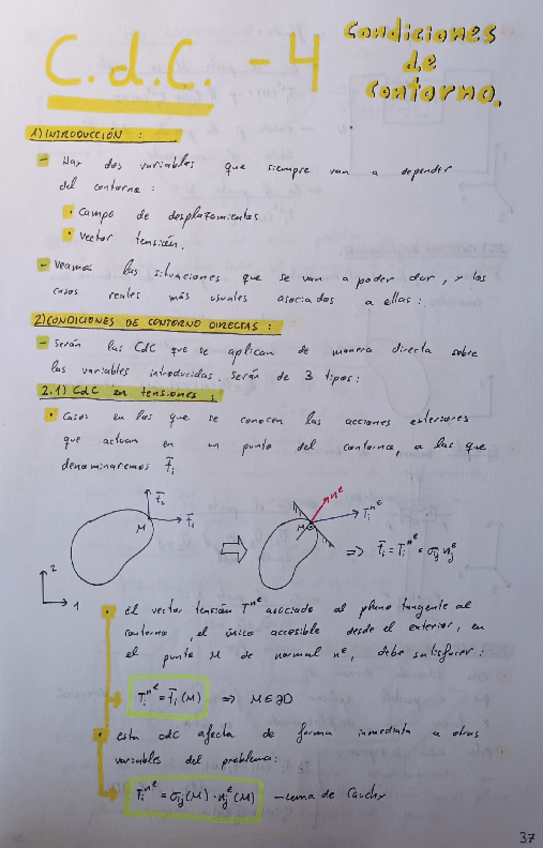 C.d.C. - 4
Condiciones
de
contorno.
1) INTRODUCCIÓN :
- Hay dos variables que siempre van a depender
del contorno :
• Campo de desplazamientos
• Vector tensión.
- Veamos las situaciones que se van a poder dar, y los
casos reales más usuales asociados a ellas :
2) CONDICIONES DE CONTORNO DIRECTAS :
- Serán las CdC que se aplican de manera directa sobre
las variables introducidas. Serán de 3 tipos :
2.1) CdC en tensiones :
• Casos en los que se conocen las acciones exteriores
que actuan en un punto del contorno, a las que
denominaremos f̄ᵢ
f̄₂
f̄₁
M
nᵉ
Tᵢⁿᵉ
M
⇒ f̄ᵢ = Tᵢⁿᵉ = σᵢⱼ nⱼᵉ
2
1
• El vector tensión Tⁿᵉ asociado al plano tangente al
contorno, el único accesible desde el exterior, en
el punto M de normal nᵉ, debe satisfacer :
Tᵢⁿᵉ = f̄ᵢ (M) ⇒ M ∈ ∂D
• Esta CdC afecta de forma inmediata a otras
variables del problema :
Tᵢⁿᵉ = σᵢⱼ (M) · nⱼᵉ (M) - Lema de Cauchy
37